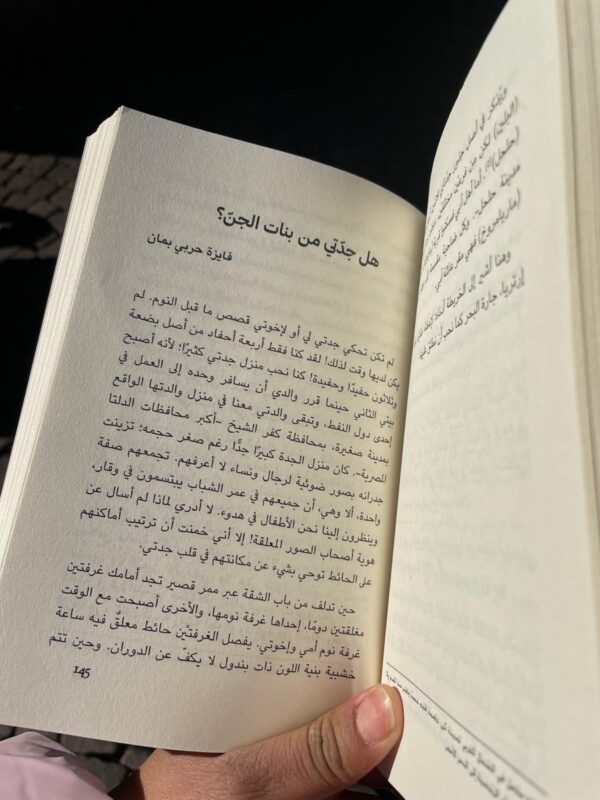 هل جدّتي من بنات الجنّ؟
فايزة حربي بمان
لم تكن تحكي جدتي لي أو لإخوتي قصص ما قبل النوم. لم
يكن لديها وقت لذلك! لقد كنا فقط أربعة أحفاد من أصل بضعة
وثلاثون حفيدًا وحفيدة! كنا نحب منزل جدتي كثيرًا؛ لأنه أصبح
بيتي الثاني حينما قرر والدي أن يسافر وحده إلى العمل في
إحدى دول النفط، وتبقى والدتي معنا في منزل والدتها الواقع
بمدينة صغيرة، بمحافظة كفر الشيخ -أكبر محافظات الدلتا
المصرية-. كان منزل الجدة كبيرًا جدًّا رغم صغر حجمه؛ تزينت
جدرانه بصور ضوئية لرجال ونساء لا أعرفهم. تجمعهم صفة
واحدة، ألا وهي، أن جميعهم في عمر الشباب يبتسمون في وقار،
وينظرون إلينا نحن الأطفال في هدوء. لا أدري لماذا لم أسأل عن
هوية أصحاب الصور المعلقة! إلا أني خمنت أن ترتيب أماكنهم
على الحائط توحي بشيء عن مكانتهم في قلب جدتي.
حين تدلف من باب الشقة عبر ممر قصير تجد أمامك غرفتين
مغلقتين دومًا، إحداها غرفة نومها، والأخرى أصبحت مع الوقت
غرفة نوم أمي وإخوتي. يفصل الغرفتيْن حائط معلقٌ فيه ساعة
خشبية بنية اللون ذات بندول لا يكفّ عن الدوران. وحين تتم
145
مدينة حلحل
وهنا أشير إلى الخريطة
إرتريا، جارة البحر كما نحب أن نطلق عليها